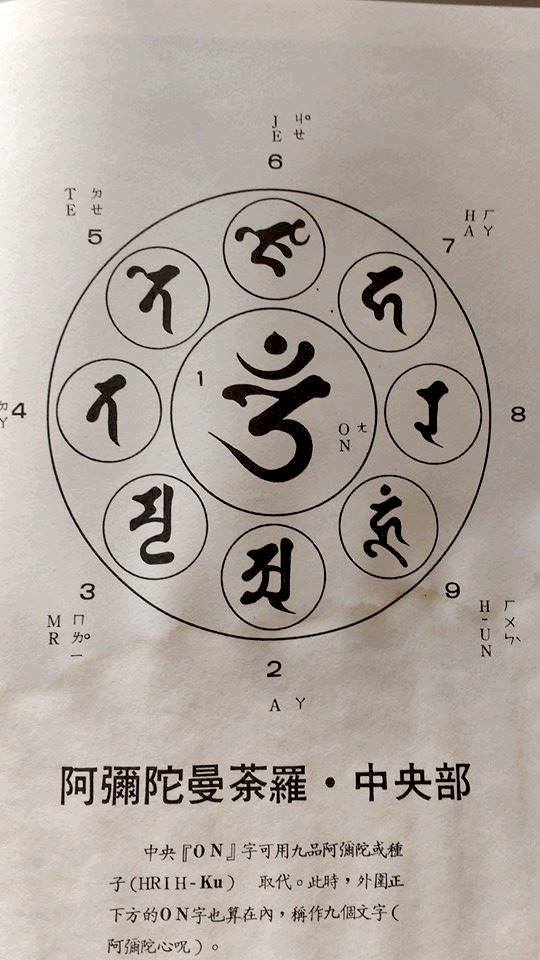 J ㄐ°
E ㄝ
6
T ㄉ
E ㄝ
5
H ㄏ
A ㄚ
7
1
O ㄤ
N
4
8
3
9
M ㄇ
R ㄌ°
一
H ㄏ
- ㄨ
U ㄣˋ
N
2
A ㄚ
阿彌陀曼荼羅・中央部
中央『ON』字可用九品阿彌陀或種
子(HRIH-Ku) 取代。此時，外圍正
下方的ON字也算在內，稱作九個文字(
阿彌陀心呪)。